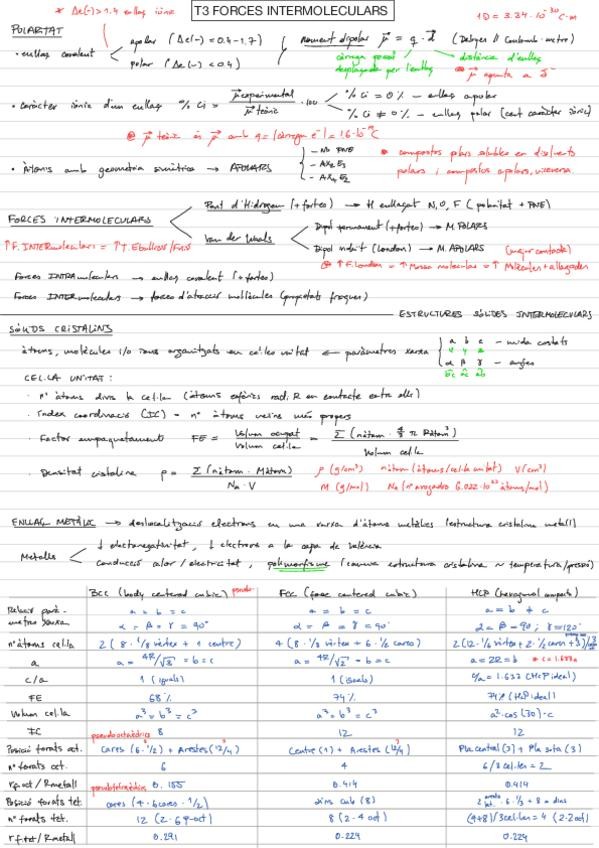 * Δe(-) > 1.7 enllaç iònic
T3 FORCES INTERMOLECULARS
1D = 3.34·10^-30 C·m
POLARITAT
· enllaç covalent
apolar (Δe(-) = 0.4-1.7)
polar (Δe(-) < 0.4)
moment dipolar μ = q · d (Debyes // Coulomb·metre)
càrrega
desplaçada per l'enllaç
distància d'enllaç
@ μ apunta a δ-
· caràcter iònic d'un enllaç % Ci = μ experimental / μ teòric · 100
% Ci = 0% - enllaç apolar
% Ci ≠ 0% - enllaç polar (cert caràcter iònic)
@ μ teòric és μ amb q = |càrrega e-| = 1.6·10^-19 C
· Àtoms amb geometria simètrica → APOLARS
- No PNE
- AX2E3
- AX4E2
* compostos polars solubles en dissolvents
polars i compostos apolars, viceversa
FORCES INTERMOLECULARS
Pont d'Hidrogen (+ fortes) → H enllaçat N, O, F (polaritat + PNE)
Van der Waals
Dipol permanent (+ fortes) → M. POLARS
Dipol induït (London) → M. APOLARS (major contacte)
↑F. INTERmoleculars = ↑T. Ebullició/Fusió
@ ↑F. London = ↑Massa molecular = ↑ Molècules + allargades
Forces INTRAmoleculars → enllaç covalent (+ fortes)
Forces INTERmoleculars → forces d'atracció molècules (propietats físiques)
ESTRUCTURES SÒLIDES INTERMOLECULARS
SÒLIDS CRISTAL·LINS
àtoms, molècules i/o ions organitzats en cel·les unitat ← paràmetres xarxa
a b c - mida costats
α β γ - angles
bc ac ab
CEL·LA UNITAT:
· nº àtoms dins la cel·la (àtoms esfèrics radi R en contacte entre ells)
· Índex coordinació (IC) = nº àtoms veïns més propers
· Factor empaquetament FE = Volum ocupat / Volum cel·la = Σ (nàtom · 4/3 π Ràtom^3) / Volum cel·la
· Densitat cristal·lina ρ = Σ (nàtom · Màtom) / Na · V
ρ (g/cm³) nàtom (àtoms/cel·la unitat) V (cm³)
M (g/mol) Na (nº avogadro 6.022·10^23 àtoms/mol)
ENLLAÇ METÀL·LIC → deslocalització electrons en una xarxa d'àtoms metàl·lics (estructura cristal·lina metall)
Metalls
↓ electronegativitat, ↓ electrons a la capa de valència
conducció calor / electricitat, polimorfisme (canvia estructura cristal·lina ~ temperatura/pressió)
BCC (body centered cubic) FCC (face centered cubic) HCP (hexagonal compacta)
Relació parà- a = b = c a = b = c a = b ≠ c
metres xarxa α = β = γ = 90° α = β = γ = 90° α = β = 90°; γ = 120°
nº àtoms cel·la 2 (8 · 1/8 vèrtex + 1 centre) 4 (8 · 1/8 vèrtex + 6 · 1/2 cares) 2 (12 · 1/6 vèrtex + 2 · 1/2 cares + 3)/3
a a = 4R/√3 = b = c a = 4R/√2 = b = c a = 2R = b * c = 1.633a
c/a 1 (iguals) 1 (iguals) c/a = 1.633 (HCP ideal)
FE 68% 74% 74% (HCP ideal)
Volum cel·la a³ = b³ = c³ a³ = b³ = c³ a² · cos(30) · c
IC 8 12 12
pseudooctaèdrics
Posició forats oct. Cares (6 · 1/2) + Arestes (12/4) Centre (1) + Arestes (12/4) Pla central (3) + Pla sota (3)
nº forats oct. 6 4 6/3 cel·les = 2
r f.oct / R metall 0.155 0.414 0.414
pseudotetraèdrics
Posició forats tet. cares (4 · 6 cares · 1/2) dins cub (8)
nº forats tet. 12 (2 · 6 f-oct) 8 (2 · 4 oct) (4+8)/3 cel·les = 4 (2 · 2 oct)
r f.tet / R metall 0.291 0.224 0.224